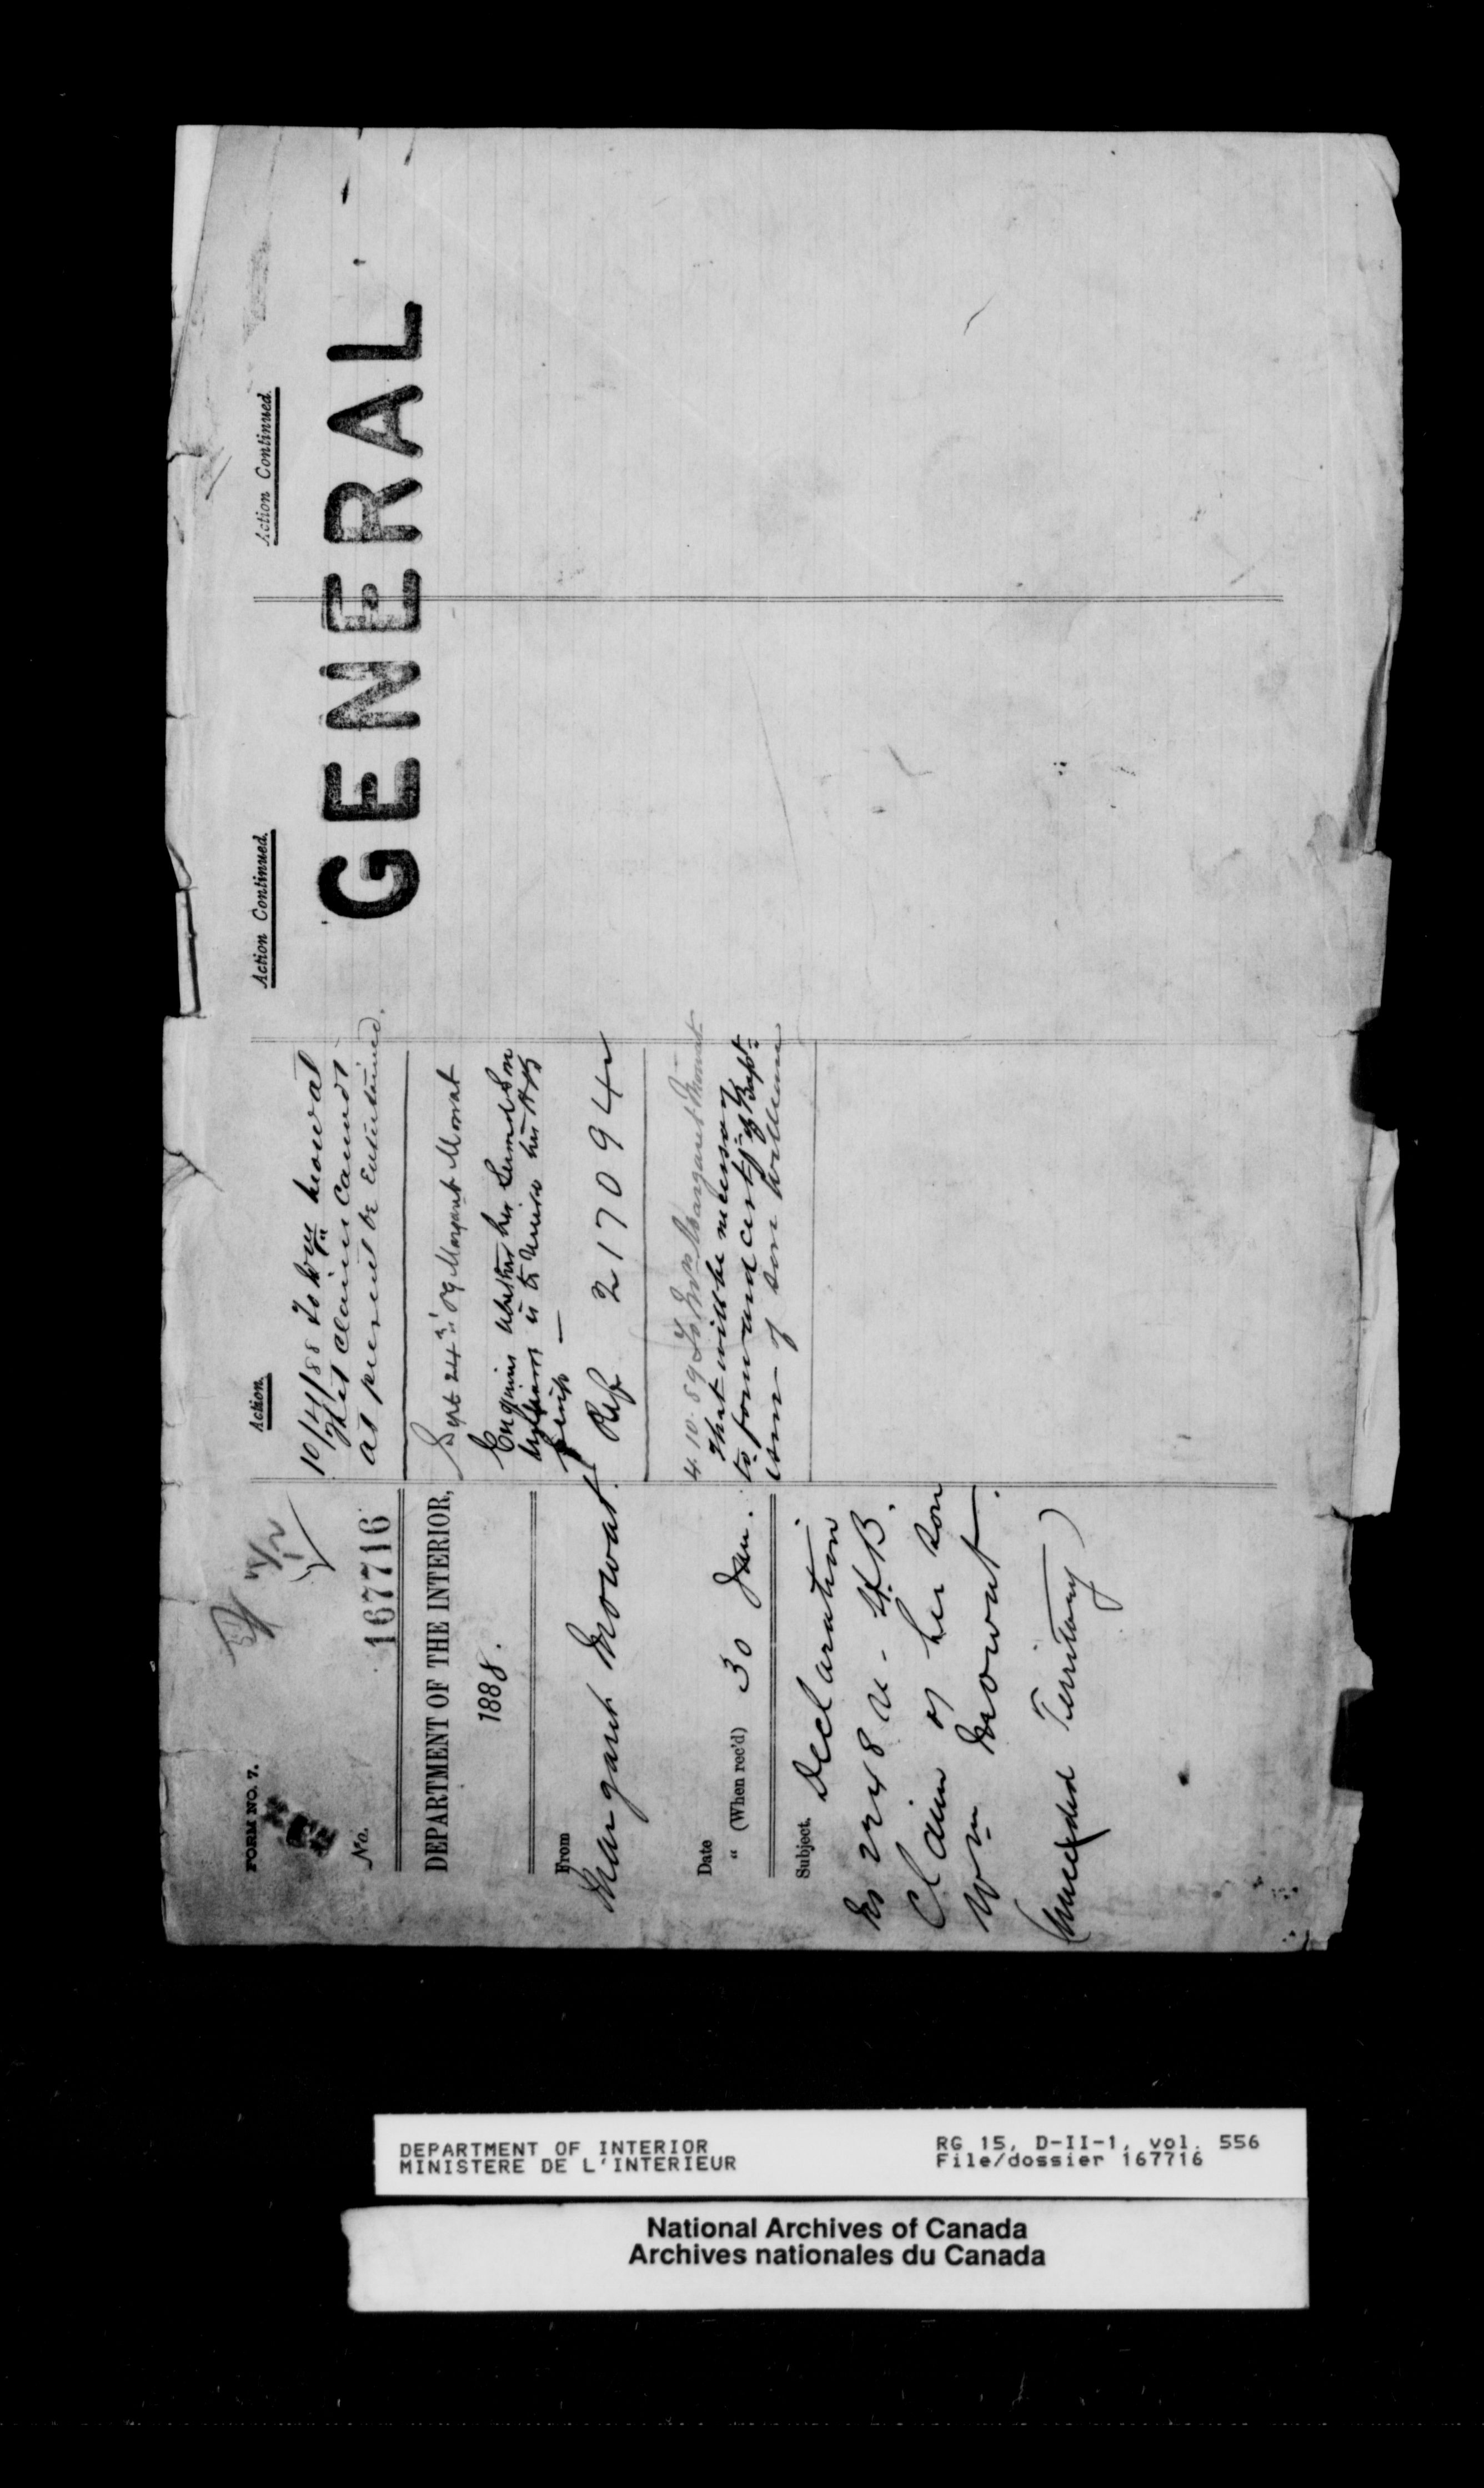 FORM NO. 7.
No. 167716
DEPARTMENT OF THE INTERIOR,
1888.
From
Margaret Mowat
Date
" (When rec'd) 30 Jan.
Subject. Declaration
Claim of her son
Wm Mowat.
Territory)
Action.
10/4/88 To Wm Mowat
that claim cannot
at present be entertained.
Sept 24th '89 Margaret Mowat
Enquires whether her second son
is to receive his HB
scrip —
Ref 217094
4.10.89 To Mrs Margaret Mowat
that will be necessary
to forward certif. of Bapt-
ism of son William
Action Continued.
Action Continued.
GENERAL
DEPARTMENT OF INTERIOR
MINISTERE DE L'INTERIEUR
RG 15, D-II-1, vol. 556
File/dossier 167716
National Archives of Canada
Archives nationales du Canada